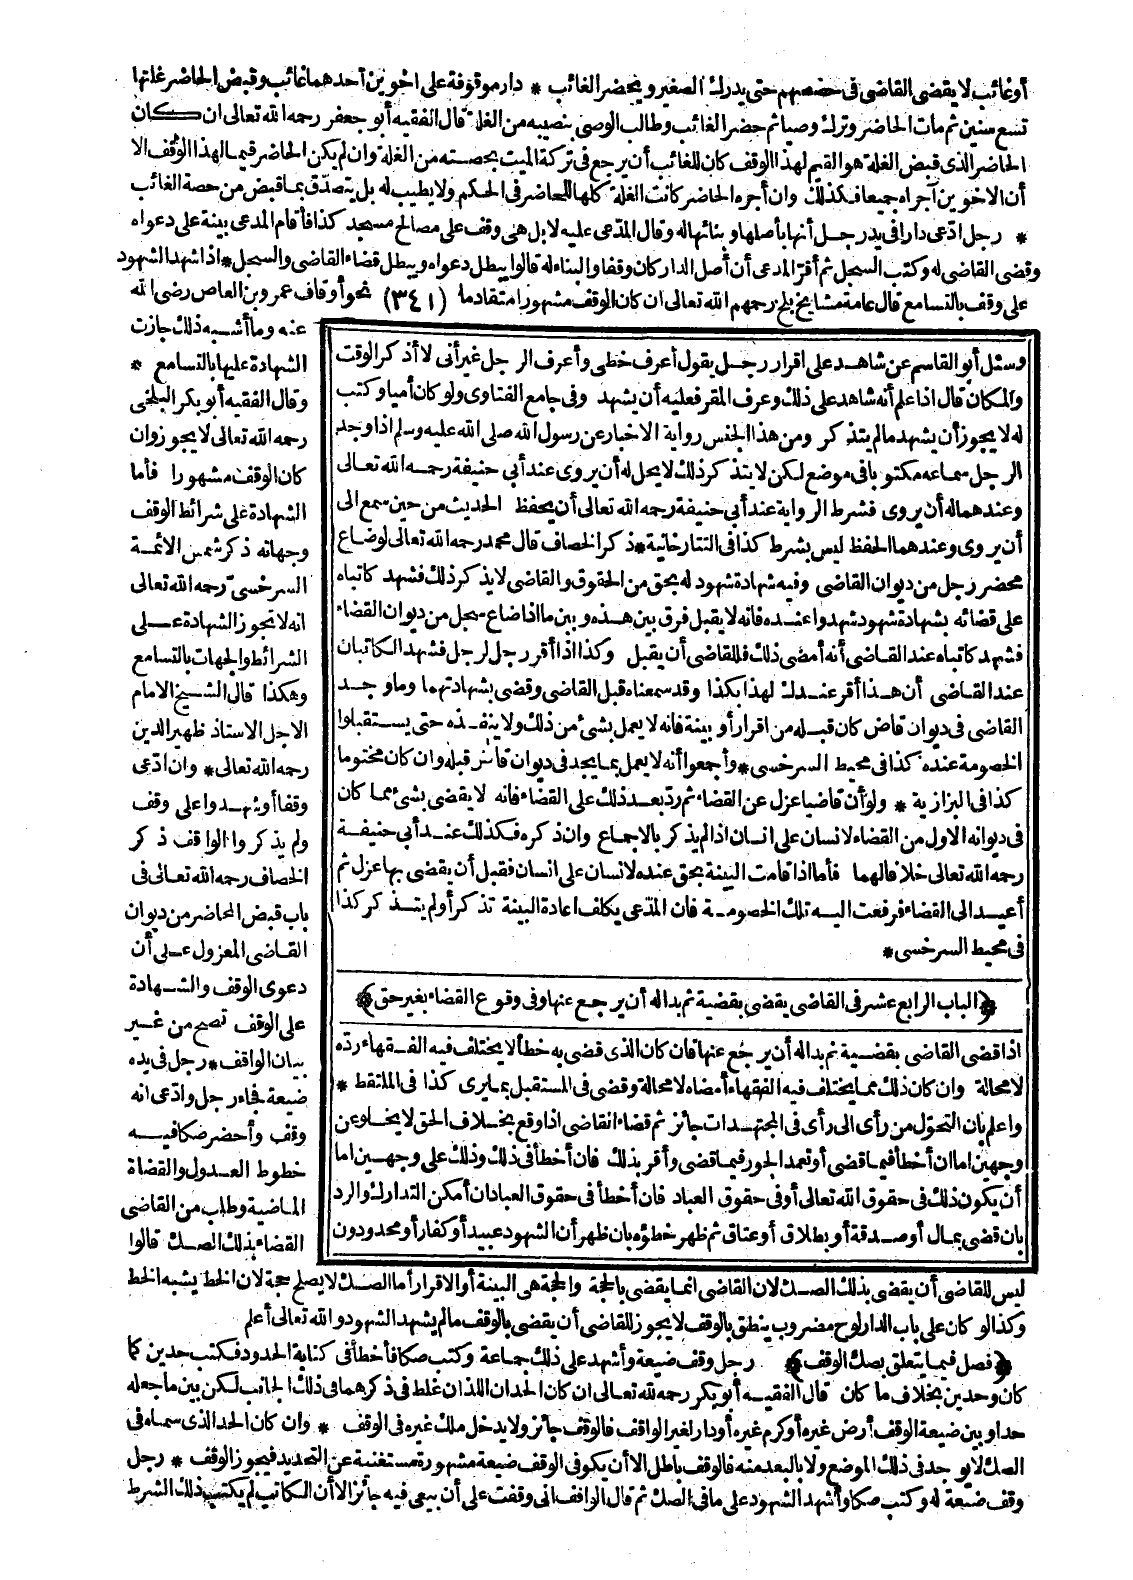 أو غائب لا يقضى القاضى فى حصصهم حتى يدرك الصغير ويحضر الغائب * دار موقوفة على اخوين أحدهما غائب وقبض الحاضر غلتها
تسع سنين ثم مات الحاضر وترك وصيا ثم حضر الغائب وطالب الوصى بنصيبه من الغلة قال الفقيه أبو جعفر رحمه الله تعالى ان كان
الحاضر الذى قبض الغلة هو القيم لهذا الوقف كان للغائب أن يرجع فى تركة الميت بحصته من الغلة وان لم يكن الحاضر قيما لهذا الوقف الا
أن الاخوين آجراه جميعا فكذلك وان أجره الحاضر كانت الغلة كلها للحاضر فى الحكم ولا يطيب له بل يتصدق بما قبض من حصة الغائب
* رجل ادّعى دارا فى يد رجل أنها بأصلها وبنائها له وقال المدّعى عليه لا بل هى وقف على مصالح مسجد كذا فأقام المدعى بينة على دعواه
وقضى القاضى له وكتب السجل ثم أقرّ المدعى أن أصل الدار كان وقفا والبناء له قالوا يبطل دعواه ويبطل قضاء القاضى والسجل * اذا شهد الشهود
على وقف بالتسامع قال عامة مشايخ بلخ رحمهم الله تعالى ان كان الوقف مشهورا متقادما (٣٤١) نحو أوقاف عمرو بن العاص رضى الله
عنه وما أشبه ذلك جازت
الشهادة عليها بالتسامع *
وقال الفقيه أبو بكر البلخى
رحمه الله تعالى لا يجوز وان
كان الوقف مشهورا فأما
الشهادة على شرائط الوقف
وجهاته ذكر شمس الائمة
السرخسىّ رحمه الله تعالى
انه لا تجوز الشهادة على
الشرائط والجهات بالتسامع
وهكذا قال الشيخ الامام
الاجل الاستاذ ظهير الدين
رحمه الله تعالى * وان ادّعى
وقفا أو شهدوا على وقف
ولم يذكروا الواقف ذكر
الخصاف رحمه الله تعالى فى
باب قبض المحاضر من ديوان
القاضى المعزول على أن
دعوى الوقف والشهادة
على الوقف تصح من غير
بيان الواقف * رجل فى يده
ضيعة فجاء رجل وادّعى انه
وقف وأحضر صكا فيه
خطوط العدول والقضاة
الماضية وطلب من القاضى
القضاء بذلك الصك قالوا
ليس للقاضى أن يقضى بذلك الصك لان القاضى انما يقضى بالحجة والحجة هى البينة أو الاقرار أما الصك لا يصلح حجة لان الخط يشبه الخط
وكذا لو كان على باب الدار لوح مضروب ينطق بالوقف لا يجوز للقاضى أن يقضى بالوقف ما لم يشهد الشهود والله تعالى أعلم
﴿فصل فيما يتعلق بصك الوقف﴾ رجل وقف ضيعة وأشهد على ذلك جماعة وكتب صكا فأخطأ فى كتابة الحدود فكتب حدين كما
كان وحدين بخلاف ما كان قال الفقيه أبو بكر رحمه لله تعالى ان كان الحدان اللذان غلط فى ذكرهما فى ذلك الجانب لكن بين ما جعله
حدا وبين ضيعة الوقف أرض غيره أو كرم غيره أو دار لغير الواقف فالوقف جائز ولا يدخل ملك غيره فى الوقف * وان كان الحد الذى سماه فى
الصك لا يوجد فى ذلك الموضع ولا بالبعد منه فالوقف باطل الا أن يكون الوقف ضيعة مشهورة مستغنية عن التحديد فيجوز الوقف * رجل
وقف ضيعة له وكتب صكا وأشهد الشهود على ما فى الصك ثم قال الواقف انى وقفت على أن بيعى فيه جائز الا أن الكاتب لم يكتب ذلك الشرط
وسئل أبو القاسم عن شاهد على اقرار رجل يقول أعرف خطى وأعرف الرجل غير أنى لا أذكر الوقت
والمكان قال اذا علم أنه شاهد على ذلك وعرف المقر فعليه أن يشهد وفى جامع الفتاوى ولو كان أميا وكتب
له لا يجوز أن يشهد ما لم يتذكر ومن هذا الجنس رواية الاخبار عن رسول الله صلى الله عليه وسلم اذا وجد
الرجل سماعه مكتوبا فى موضع لكن لا يتذكر ذلك لا يحل له أن يروى عند أبى حنيفة رحمه الله تعالى
وعندهما له أن يروى فشرط الرواية عند أبى حنيفة رحمه الله تعالى أن يحفظ الحديث من حين سمع الى
أن يروى وعندهما الحفظ ليس بشرط كذا فى التتارخانية * ذكر الخصاف قال محمد رحمه الله تعالى لو ضاع
محضر رجل من ديوان القاضى وفيه شهادة شهود له بحق من الحقوق والقاضى لا يذكر ذلك فشهد كاتباه
على قضائه بشهادة شهود شهدوا عنده فانه لا يقبل فرق بين هذه وبين ما اذا ضاع سجل من ديوان القضاء
فشهد كاتباه عند القاضى أنه أمضى ذلك فللقاضى أن يقبل وكذا اذا أقر رجل لرجل فشهد الكاتبان
عند القاضى أن هذا أقر عندك لهذا بكذا وقد سمعناه قبل القاضى وقضى بشهادتهما وما وجد
القاضى فى ديوان قاض كان قبله من اقرار أو بينة فانه لا يعمل بشئ من ذلك ولا ينفذه حتى يستقبلوا
الخصومة عنده كذا فى محيط السرخسى * وأجمعوا أنه لا يعمل بما يجد فى ديوان قاض قبله وان كان مختوما
كذا فى البزازية * ولو أن قاضيا عزل عن القضاء ثم ردّ بعد ذلك على القضاء فانه لا يقضى بشئ مما كان
فى ديوانه الاول من القضاء لانسان على انسان اذا لم يذكر بالاجماع وان ذكره فكذلك عند أبى حنيفة
رحمه الله تعالى خلافا لهما فأما اذا قامت البينة بحق عنده لانسان على انسان فقبل أن يقضى بها عزل ثم
أعيد الى القضاء فرفعت اليه تلك الخصومة فان المدّعى يكلف اعادة البينة تذكر أو لم يتذكر كذا
فى محيط السرخسى *
﴿الباب الرابع عشر فى القاضى يقضى بقضية ثم بدا له أن يرجع عنها وفى وقوع القضاء بغير حق﴾
اذا قضى القاضى بقضية ثم بدا له أن يرجع عنها فان كان الذى قضى به خطأ لا يختلف فيه الفقهاء ردّه
لا محالة وان كان ذلك مما يختلف فيه الفقهاء أمضاه لا محالة وقضى فى المستقبل بما يرى كذا فى الملتقط *
واعلم بان التحوّل من رأى الى رأى فى المجتهدات جائز ثم قضاء القاضى اذا وقع بخلاف الحق لا يخلو عن
وجهين اما ان أخطأ فيما قضى أو تعمد الجور فيما قضى وأقر بذلك فان أخطأ فى ذلك وذلك على وجهين اما
أن يكون ذلك فى حقوق الله تعالى أو فى حقوق العباد فان أخطأ فى حقوق العباد ان أمكن التدارك والرد
بان قضى بمال أو صدقة أو بطلاق أو عتاق ثم ظهر خطؤه بان ظهر أن الشهود عبيد أو كفار أو محدودون